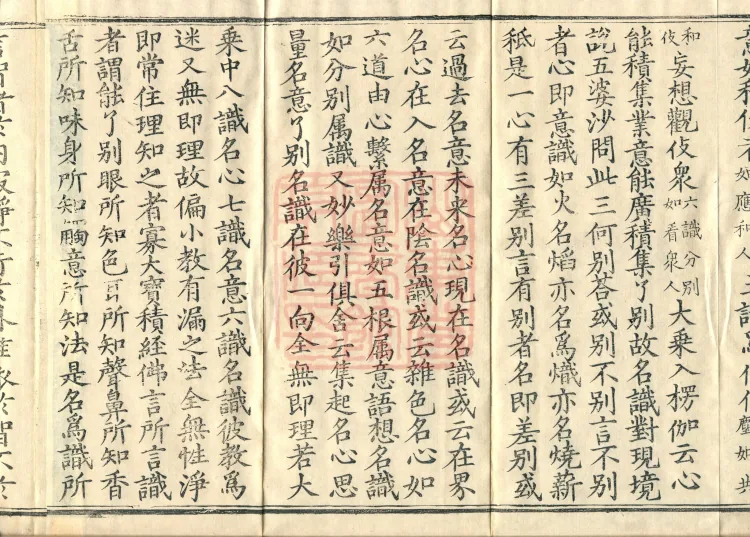 和伎妄想觀伎衆六識分別如看衆人大乘入楞伽云心
能積集業意能廣積集了別故名識對現境
說五婆沙問此三何別荅或別不別言不別
者心即意識如火名熖亦名爲熾亦名燒薪
秪是一心有三差別言有別者名即差別或
云過去名意未來名心現在名識或云在界
名心在入名意在陰名識或云雜色名心如
六道由心繫属名意如五根属意語想名識
如分別属識又妙樂引俱舍云集起名心思
量名意了別名識在彼一向全無即理若大
乘中八識名心七識名意六識名識彼教爲
迷又無即理故偏小教有漏之法全無性淨
即常住理知之者寡大寶積經佛言所言識
者謂能了別眼所知色耳所知聲鼻所知香
舌所知味身所知觸意所知法是名爲識所